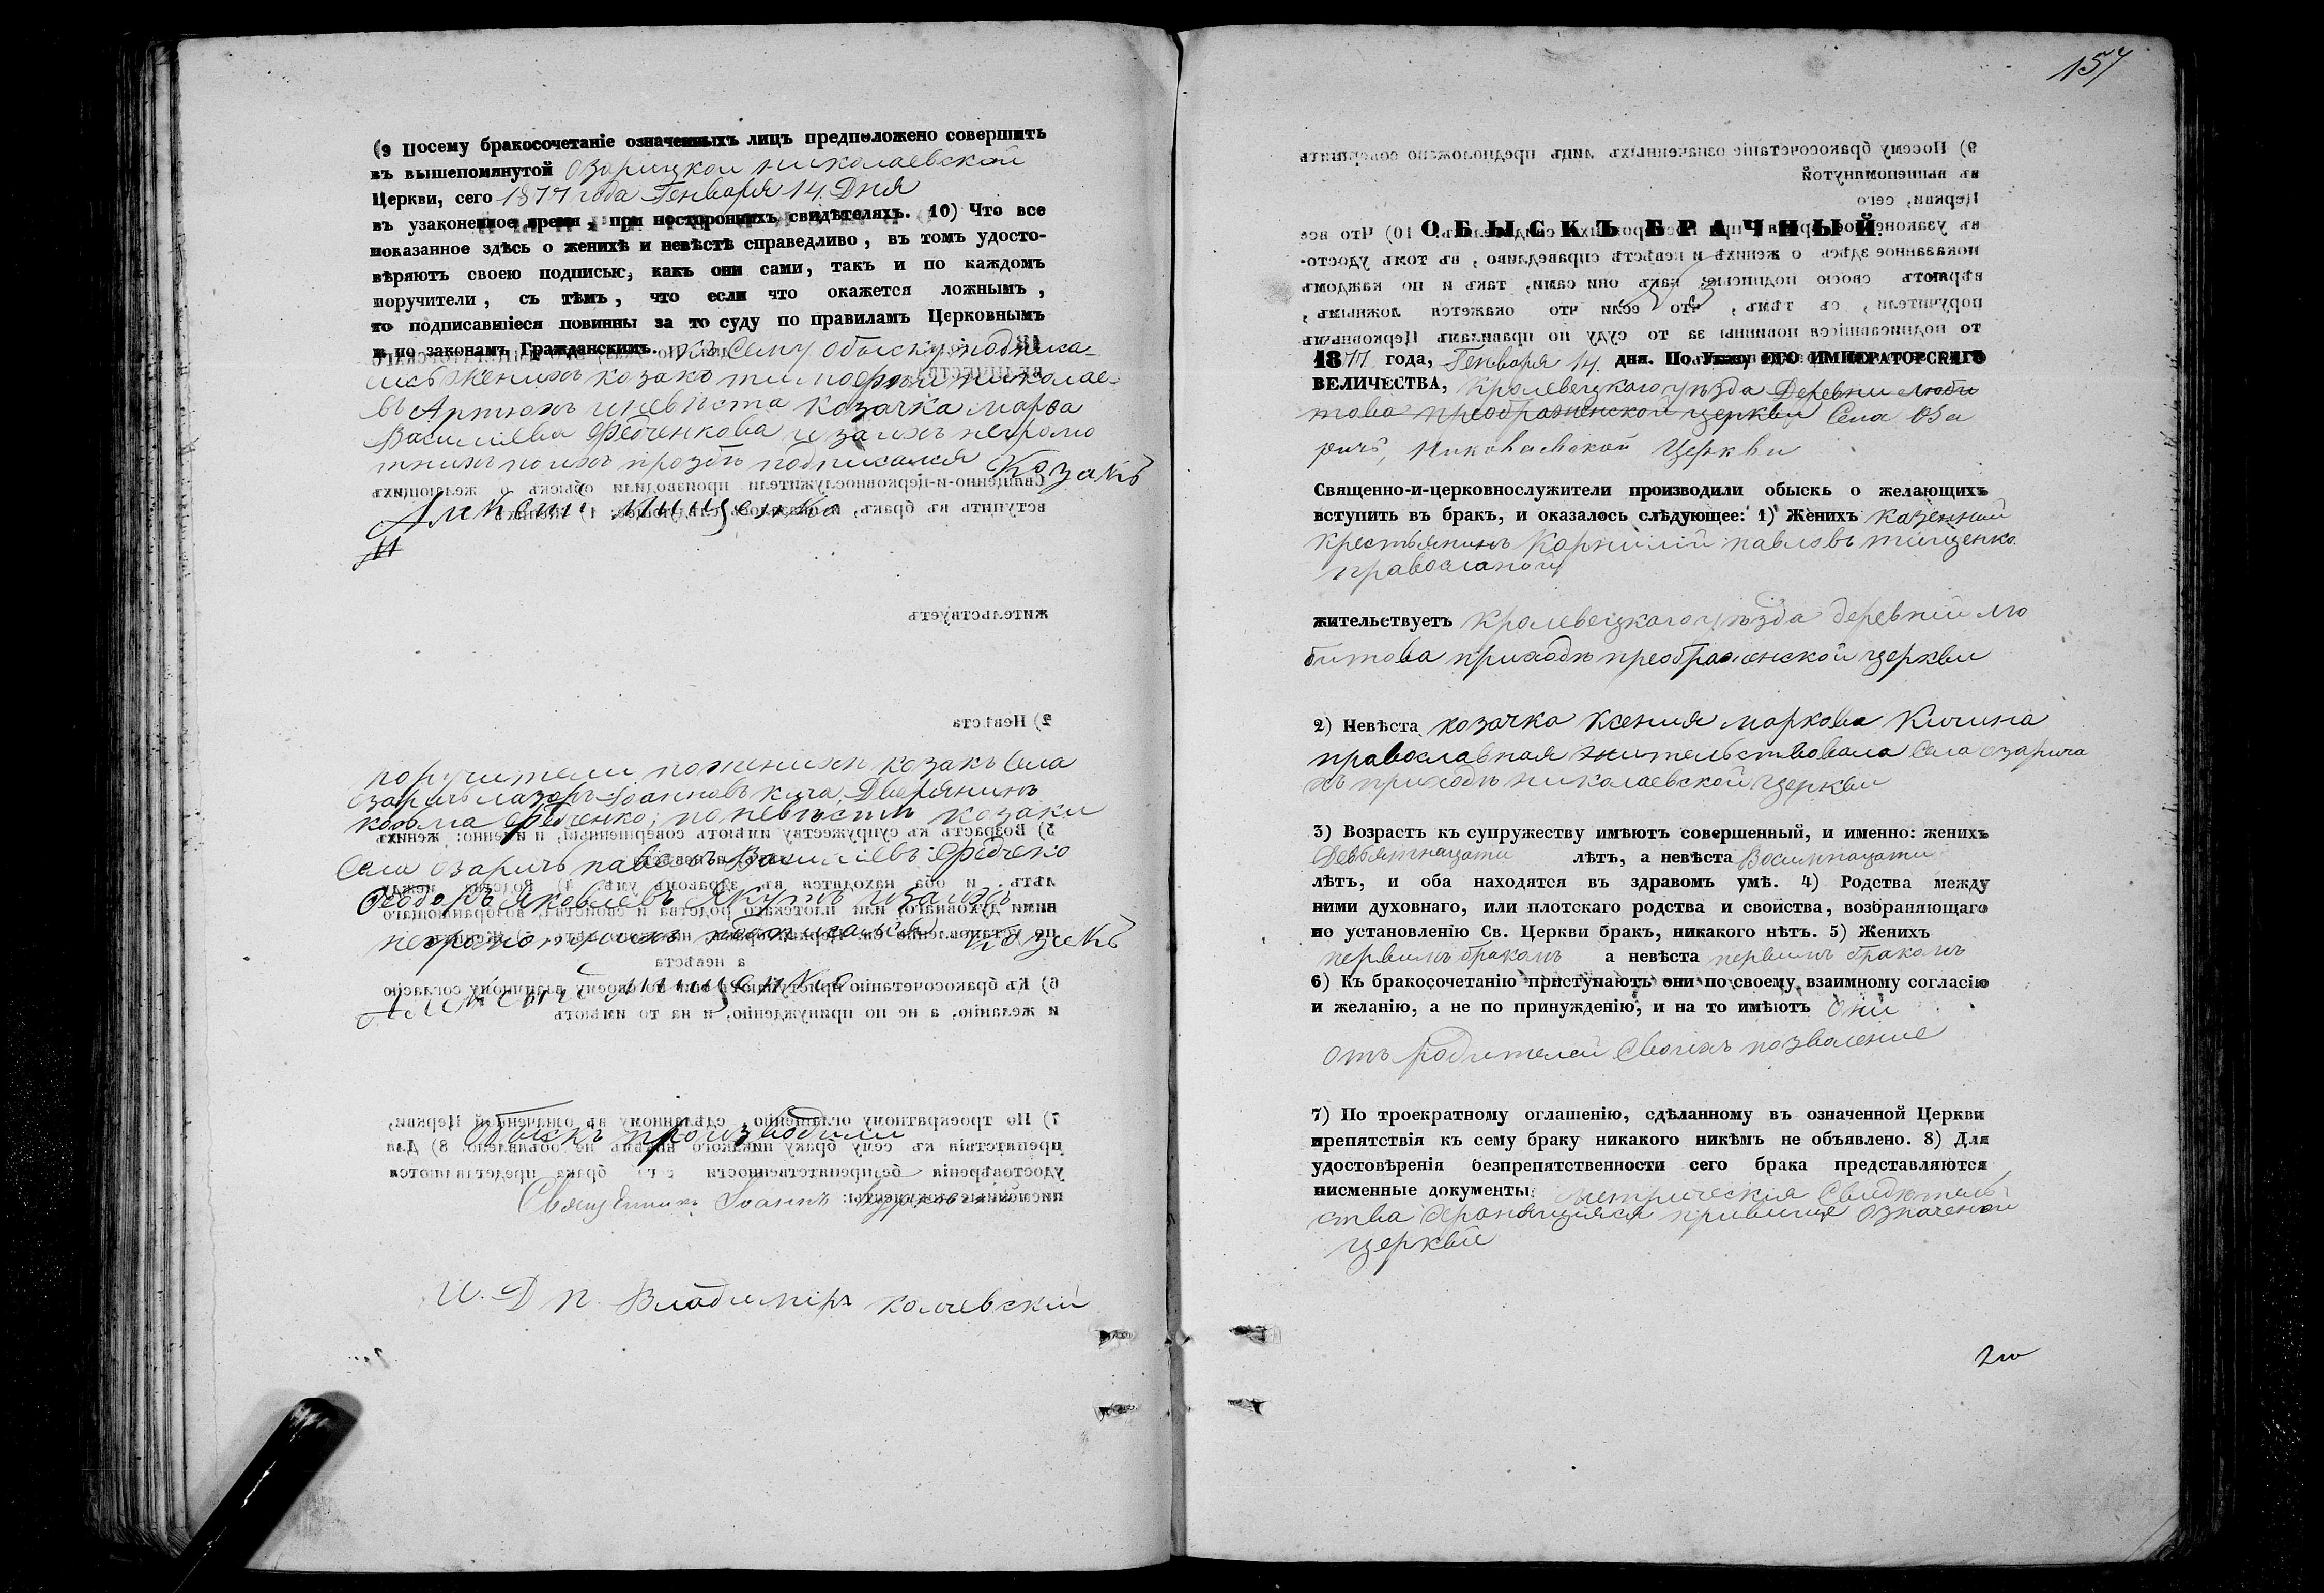 (9 Посему бракосочетаніе означенныхъ лицъ предположено совершить
въ вышепомянутой Озарицкой Николаевской
Церкви, сего 1877 года Генваря 14. Дня
въ узаконенное время, при постороннихъ свидѣтеляхъ. 10) Что все
показанное здѣсь о женихѣ и невѣстѣ справедливо, въ томъ удосто-
вѣряютъ своею подписью, какъ они сами, такъ и по каждомъ
поручители, съ тѣмъ, что если что окажется ложнымъ,
то подписавшіеся повинны за то суду по правиламъ Церковнымъ
и по законамъ Гражданскимъ. Къ Сему обыску подписа-
лись женихъ козакъ Тимофей Николае-
въ Артюхъ и невѣста козачка марфа
Василіева Федченкова и за ихъ неграмо
тнихъ по ихъ прозбѣ подписался Козакъ
Алексей Тищенко
поручители по женихѣ козакъ Села
Озаричъ лазорь Іоанновъ кича, Дворянинъ
козма Федченко; по невѣстѣ козаки
Села Озаричъ павелъ Василіевъ Федчеко
Феодоръ Яковлевъ Якутъ и за ихъ
неграмотнихъ подписался Козакъ
Алексей Тищенко
Обыскъ производили
Священникъ Іоаннъ
И. Д п. Владимиръ
157
ОБЫСКЪ БРАЧНЫЙ.
1877 года, Генваря 14. дня. По Указу ЕГО ИМПЕРАТОРСКАГО
ВЕЛИЧЕСТВА, Кролевецкаго уѣзда Деревни Люби
това преображенской церкви Села Оза
ричъ, Николаевской Церкви
Священно-и-церковнослужители производили обыскъ о желающихъ
вступить въ бракъ, и оказалось слѣдующее: 1) Женихъ казенный
крестьянинъ Корнилій павловъ тищенко
православный
жительствуетъ Кролевецкаго уѣзда деревнѣ Лю
битова приходѣ преображенской церкви
2) Невѣста козачка Ксения маркова Кичина
православная жительствовала Села Озарича
въ приходѣ николаевской церкви
3) Возрастъ къ супружеству имѣютъ совершенный, и именно: женихъ
Девьятнацати лѣтъ, а невѣста Восимнацати
лѣтъ, и оба находятся въ здравомъ умѣ. 4) Родства между
ними духовнаго, или плотскаго родства и свойства, возбраняющаго
по установленію Св. Церкви бракъ, никакого нѣтъ. 5) Женихъ
первимъ бракомъ а невѣста первимъ бракомъ
6) Къ бракосочетанію приступаютъ они по своему взаимному согласію
и желанію, а не по принужденію, и на то имѣютъ они
отъ родителей Своихъ позволение
7) По троекратному оглашенію, сдѣланному въ означенной Церкви
препятствія къ сему браку никакого никѣмъ не объявлено. 8) Для
удостовѣренія безпрепятственности сего брака представляются
писменные документы: метрическія Свидѣтель-
ства означеной
церквѣ